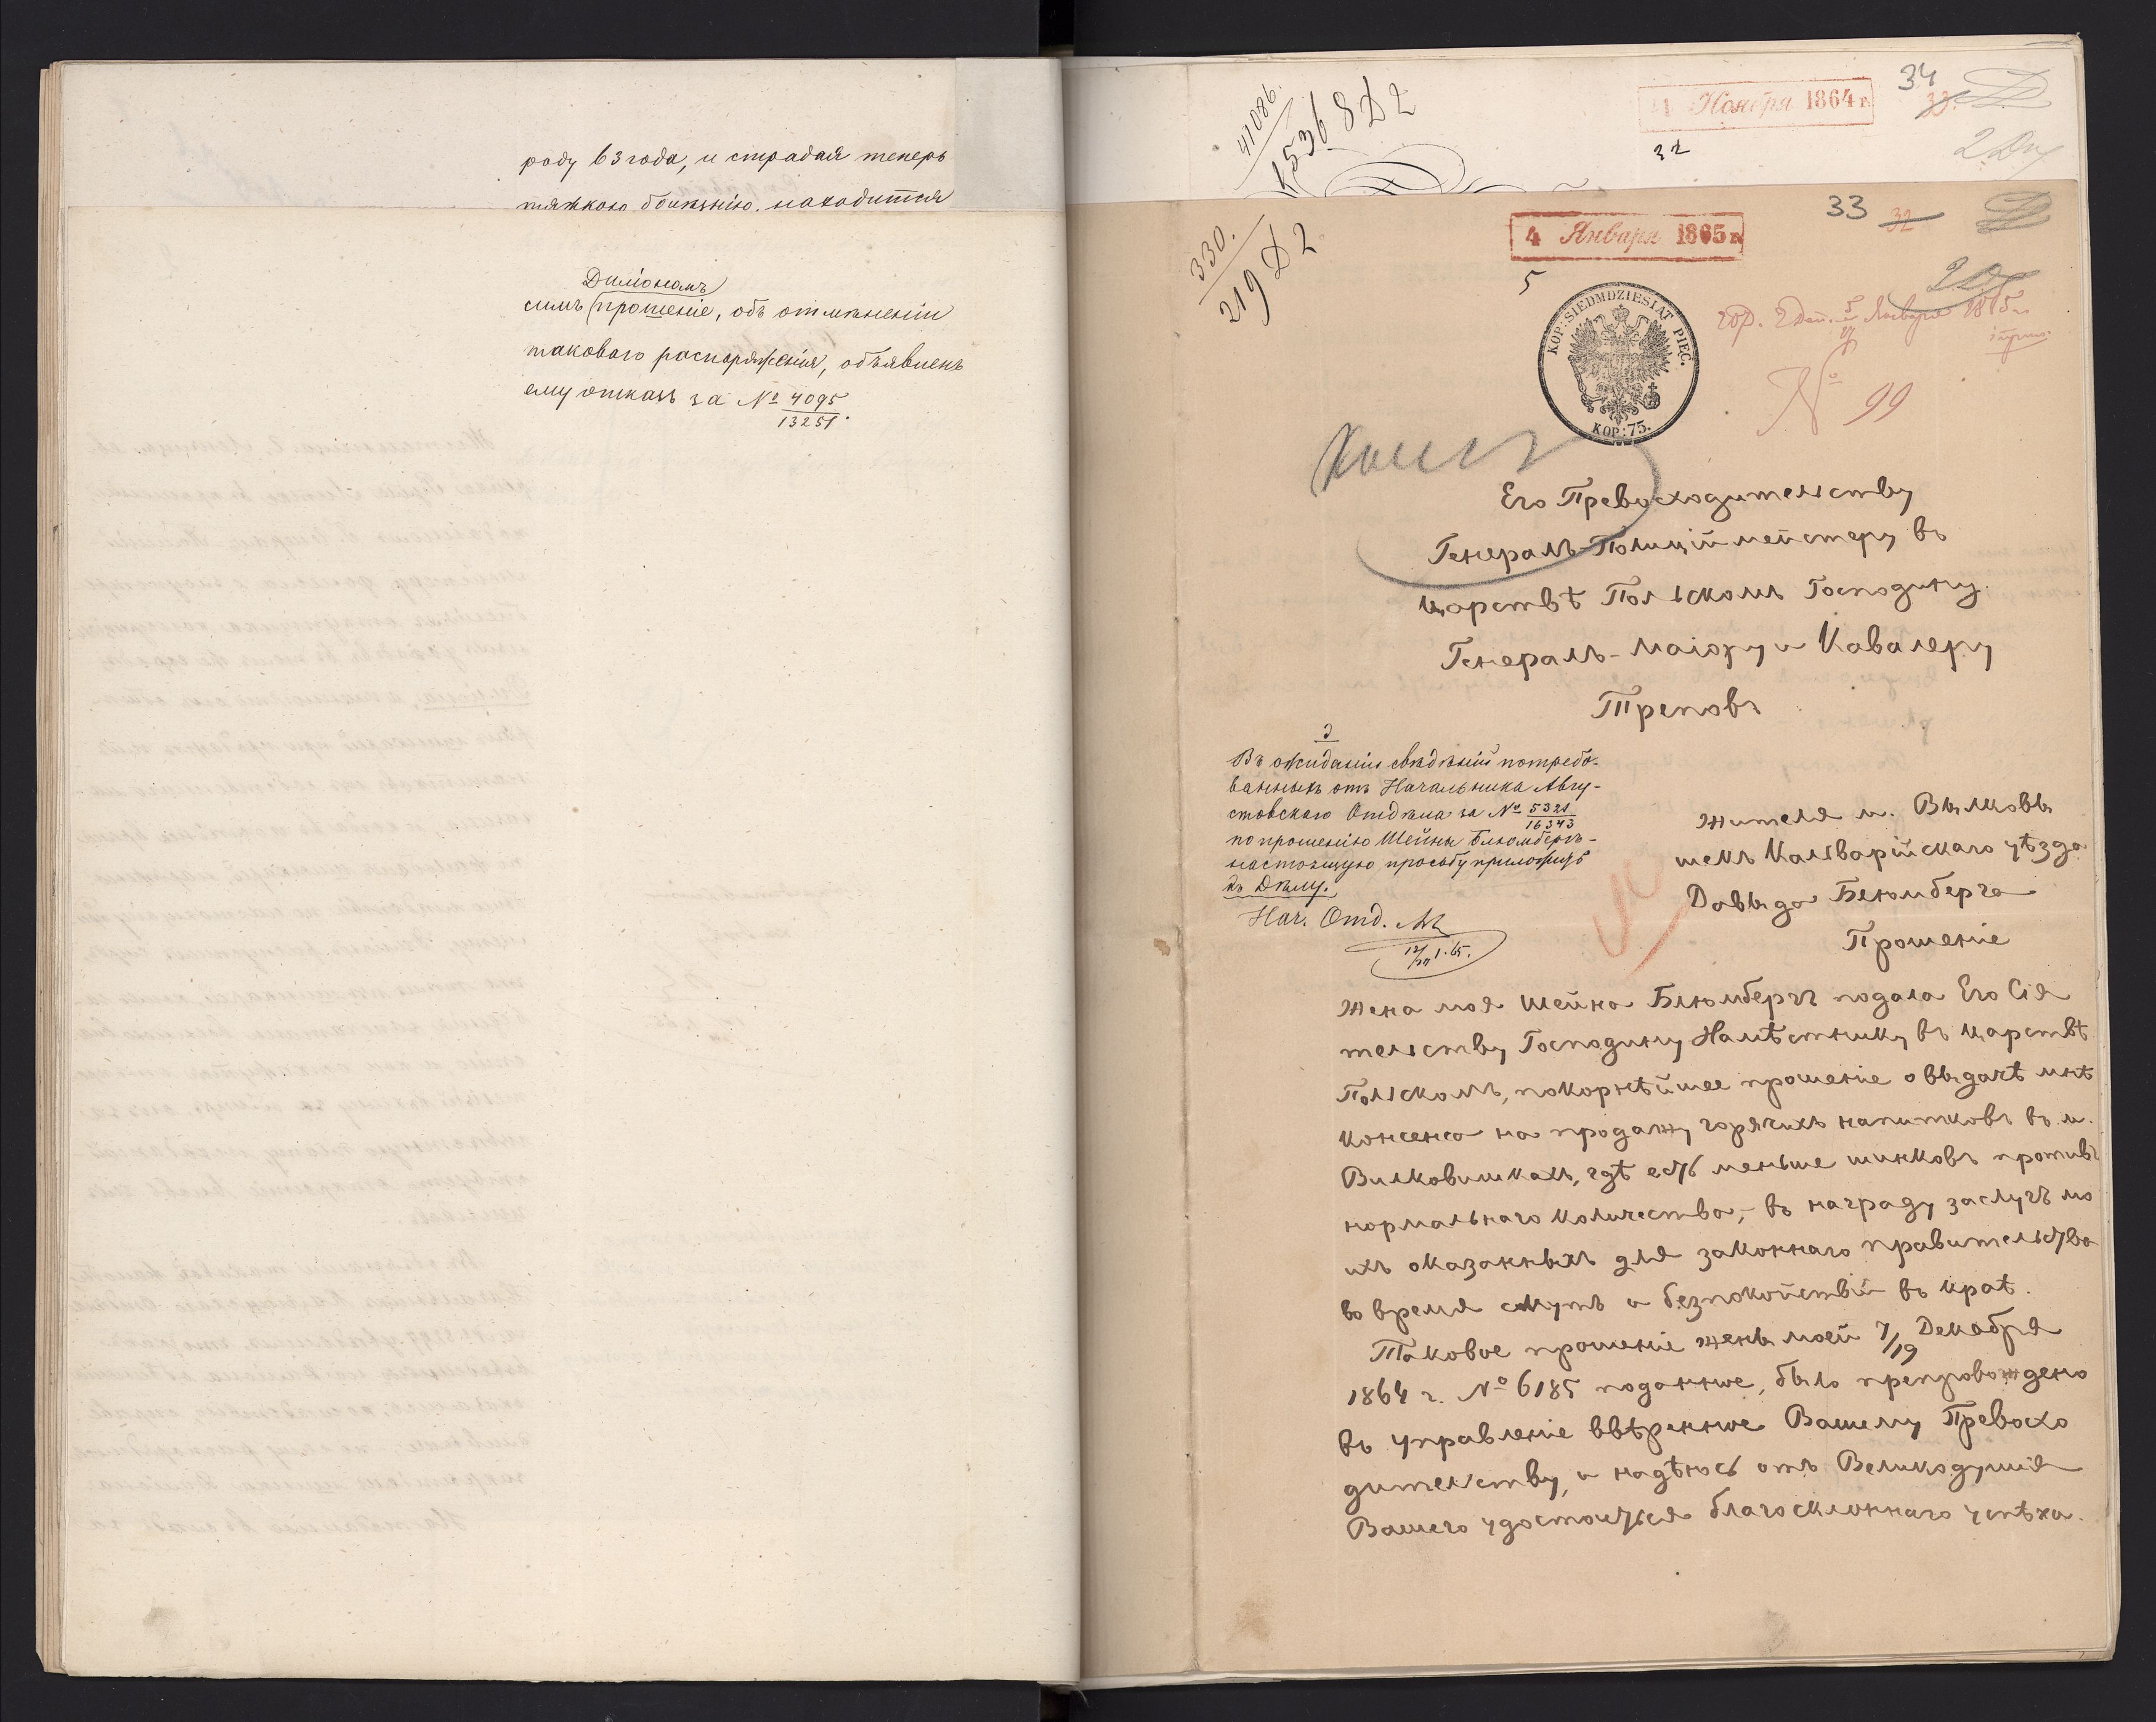 роду 63 года, и страдая теперь
тяжкою болѣзнію, находится
Дилiонамъ
симъ прошеніе, объ отмѣненіи
таковаго распоряженія, объявленъ
ему отказъ за № 4095
13251.
47086.
15368 Д2
4 Ноября 1864 г.
34
33.
32
2 Дп
330.
219 Д2
4 Января 1865 г.
33 32
5
KOP: SIEDMDZIESIĄT PIĘĆ.
KOP: 75.
Января 1865 г.
№ 99
Его Превосходительству
Генералъ-Полиціймейстеру въ
Царствѣ Польскомъ Господину
Генералъ-Маіору и Кавалеру
Треповъ
Въ ожиданіи свѣдѣній потребо-
ванныхъ отъ Начальника Авгу-
стовскаго Отдѣла за № 5321
16343
по прошенію Шейны Блюмбергъ-
настоящую просьбу приложить
къ Дѣлу.
Нач. Отд.
12/24 1. 65.
Жителя м. Вылковы
шекъ Кальварійскаго уѣзда
Давыда Блюмберга
Прошеніе
Жена моя Шейна Блюмбергъ подала Его Сія
тельству Господину Намѣстнику въ Царствѣ
Польскомъ, покорнѣйшее прошеніе о выдачѣ мнѣ
консенса на продажу горячихъ напитковъ въ м.
Вилковишкахъ, гдѣ есть меньше шинковъ противъ
нормальнаго количества,- въ награду заслугъ мо
ихъ оказанныхъ для законнаго правительства
во время смутъ и безпокойствій въ краѣ.
Таковое прошеніе жены моей 7/19 Декабря
1864 г. № 6185 поданное, было препровождено
въ управленіе ввѣренное Вашему Превосхо
дительству, и надѣюсь отъ Великодушія
Вашего удостоиться благосклоннаго успѣха.